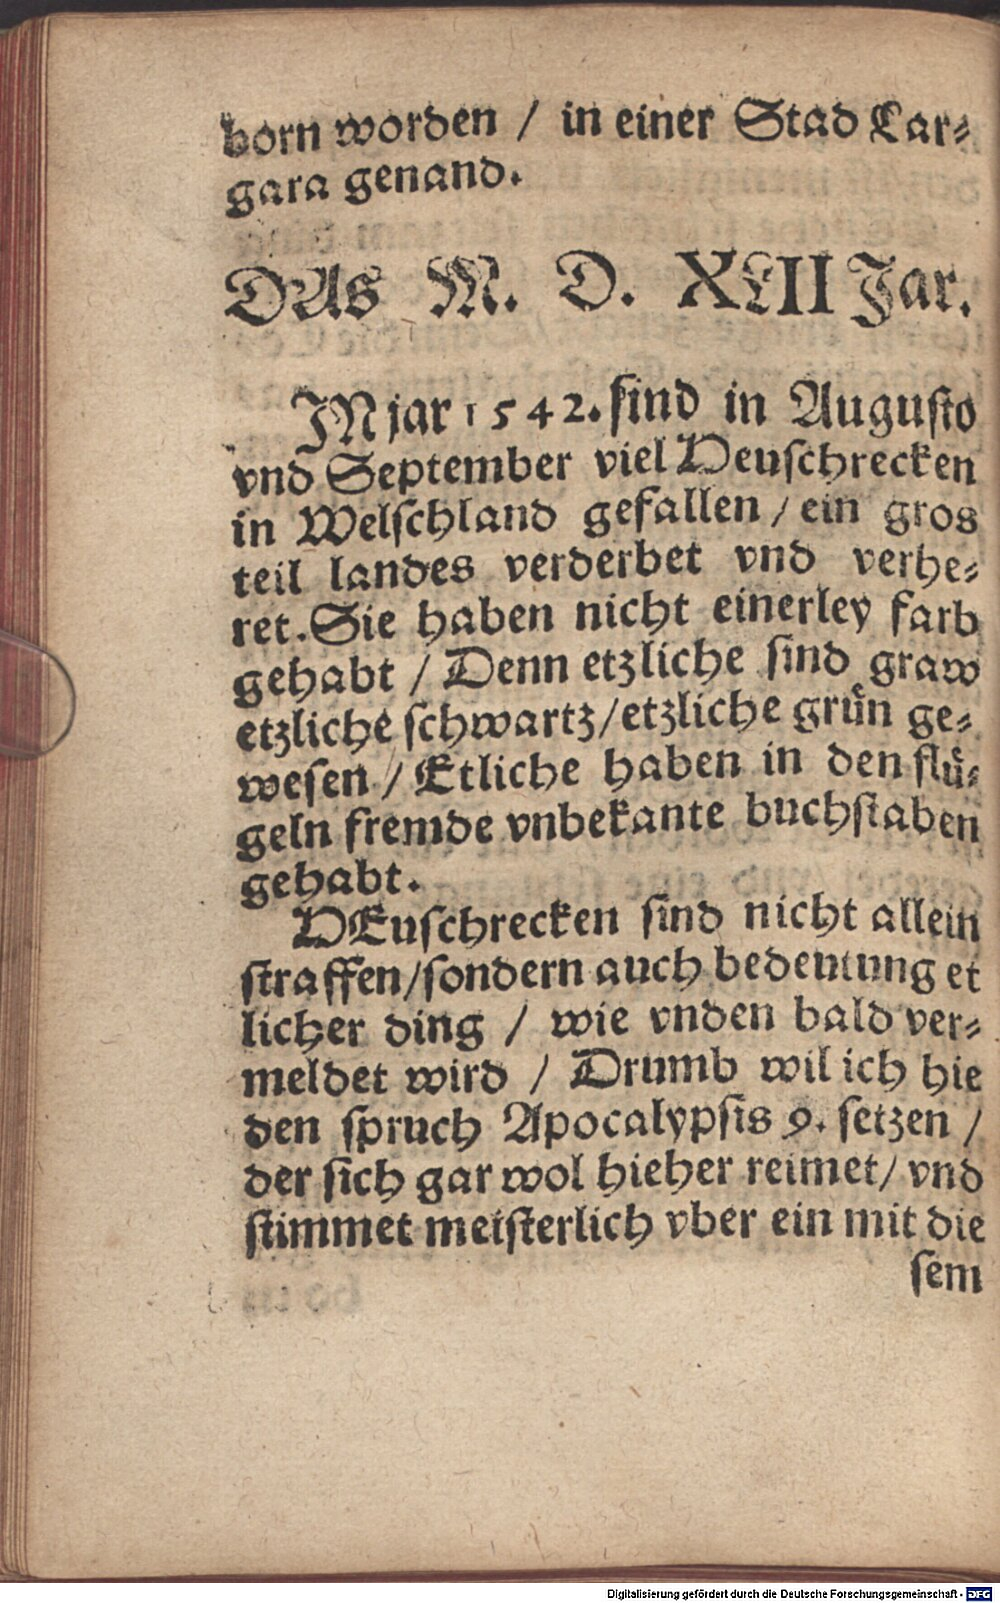 born worden / in einer Stad Car⸗
gara genand.
DAs M. D. XLII Jar.
JN jar 1542. sind in Augusto
vnd September viel Heuschrecken
in Welschland gefallen / ein gros
teil landes verderbet vnd verhe⸗
ret. Sie haben nicht einerley farb
gehabt / Denn etzliche sind graw
etzliche schwartz / etzliche grün ge⸗
wesen / Etliche haben in den flü⸗
geln fremde vnbekante buchstaben
gehabt.
HEuschrecken sind nicht allein
straffen / sondern auch bedeutung et
licher ding / wie vnden bald ver⸗
meldet wird / Drumb wil ich hie
den spruch Apocalypsis 9. setzen /
der sich gar wol hieher reimet / vnd
stimmet meisterlich vber ein mit die
sem
Digitalisierung gefördert durch die Deutsche Forschungsgemeinschaft - DFG